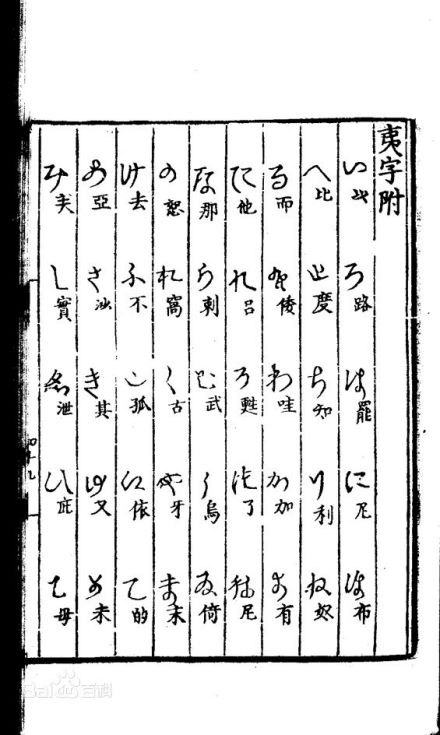 夷字附
い ろ路 は罷 に尼 ほ布
へ比 と度 ち知 り利 ぬ奴
る而 を倭 わ哇 か加 よ有
た他 れ呂 そ甦 つ了 ね尼
な那 ら剌 む武 う烏 ゐ倚
の怒 お窩 く古 や牙 ま末
け去 ふ不 こ孤 え依 て的
あ亞 さ沙 き其 ゆ又 め未
み し實 ゑ泄 ひ庇 も毋
四十九
Bai百科